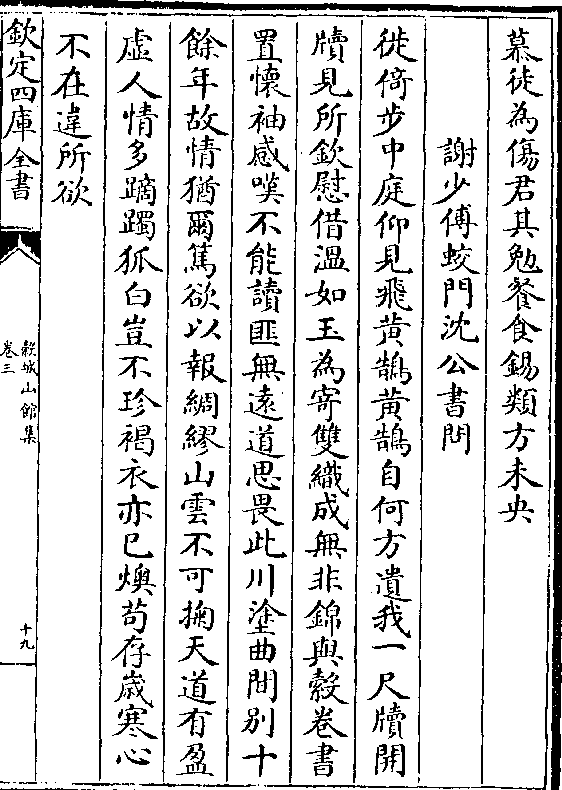 慕徒為傷君其勉餐食錫類方未央
謝少傅蛟門沈公書問
徙倚步中庭仰見飛黃鵠黃鵠自何方遺我一尺牘開
牘見所欽慰借溫如玉為寄雙織成無非錦與縠卷書
置懷袖感嘆不能讀匪無遠道思畏此川塗曲間別十
餘年故情猶爾篤欲以報綢繆山雲不可掬天道有盈
虛人情多躑躅狐白豈不珍褐衣亦已燠苟存歲寒心
不在違所欲
欽定四庫全書
穀城山館集
卷三
十九